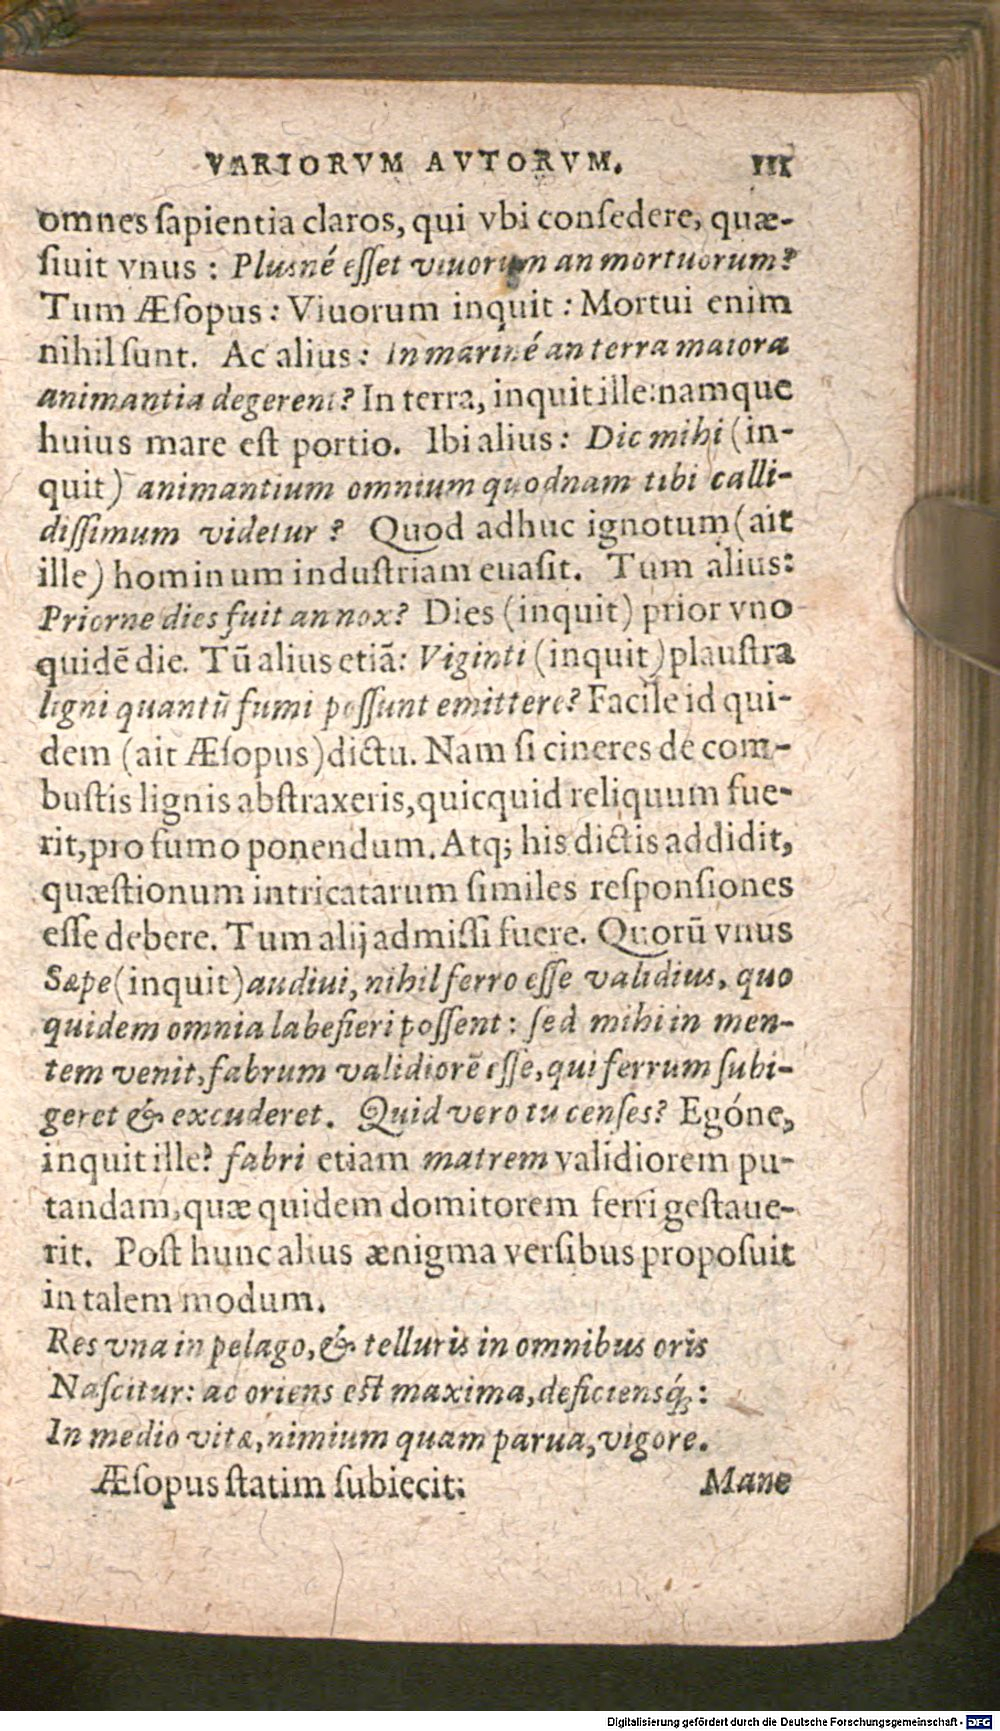 VARIORVM AVTORVM. III
omnes ſapientia claros, qui vbi conſedere, quæ-
ſiuit vnus : Pluśné eſſet viuorum an mortuorum?
Tum Æſopus : Viuorum inquit : Mortui enim
nihil ſunt. Ac alius : In mariné an terra maiora
animantia degerent? In terra, inquit ille: namque
huius mare eſt portio. Ibi alius : Dic mihi (in-
quit) animantium omnium quodnam tibi calli-
diſſimum videtur ? Quod adhuc ignotum (ait
ille) hominum induſtriam euaſit. Tum alius:
Priorne dies fuit an nox? Dies (inquit) prior vno
quidē die. Tū alius etiā: Viginti (inquit) plauſtra
ligni quantū fumi poſſunt emittere? Facile id qui-
dem (ait Æſopus) dictu. Nam ſi cineres de com-
buſtis lignis abſtraxeris, quicquid reliquum fue-
rit, pro fumo ponendum. Atq; his dictis addidit,
quæſtionum intricatarum ſimiles reſponſiones
eſſe debere. Tum alij admiſſi fuere. Quorū vnus
Sæpe (inquit) audiui, nihil ferro eſſe validius, quo
quidem omnia labefieri poſſent : ſed mihi in men-
tem venit, fabrum validiorē eſſe, qui ferrum ſubi-
geret & excuderet. Quid vero tu cenſes? Egóne,
inquit ille? fabri etiam matrem validiorem pu-
tandam, quæ quidem domitorem ferri geſtaue-
rit. Poſt hunc alius ænigma verſibus propoſuit
in talem modum.
Res vna in pelago, & telluris in omnibus oris
Naſcitur: ac oriens eſt maxima, deficiensq́;:
In medio vitæ, nimium quam parua, vigore.
Æſopus ſtatim ſubiecit: Mane
Digitalisierung gefördert durch die Deutsche Forschungsgemeinschaft - DFG